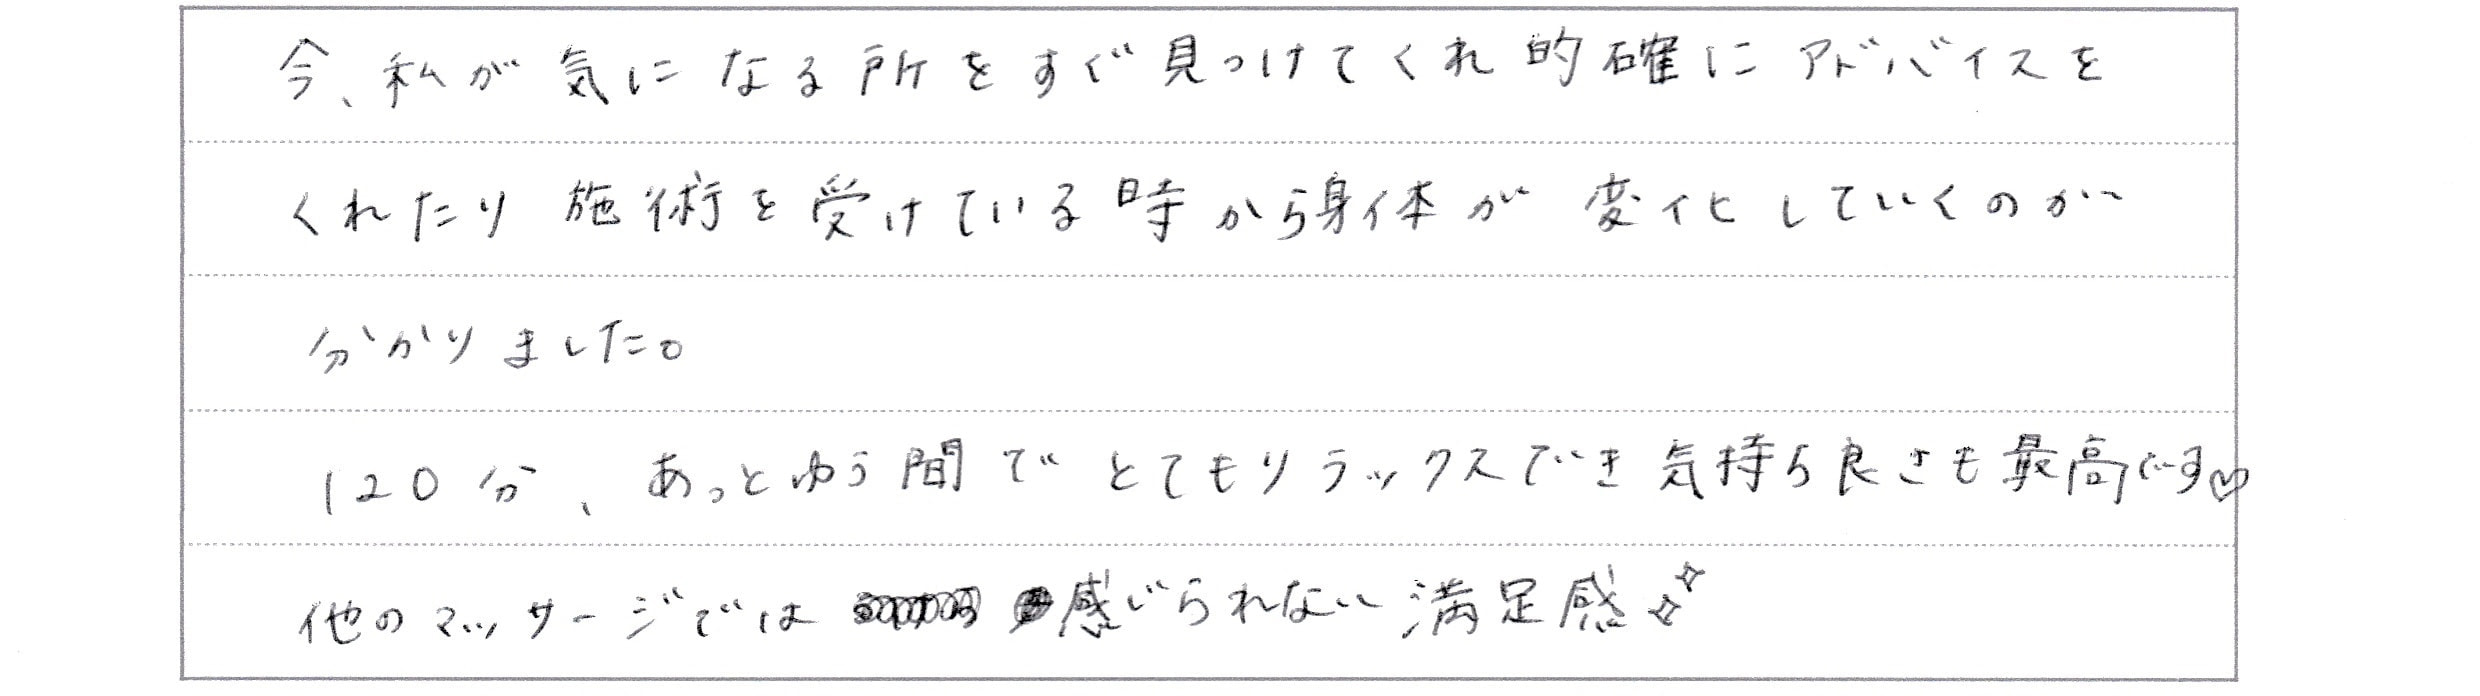 今、私が気になる所をすぐ見つけてくれ的確にアドバイスを
くれたり施術を受けている時から身体が変化していくのが
分かりました。
120分、あっとゆう間でとてもリラックスでき気持ち良さも最高です♡
他のマッサージでは感じられない満足感✧✧